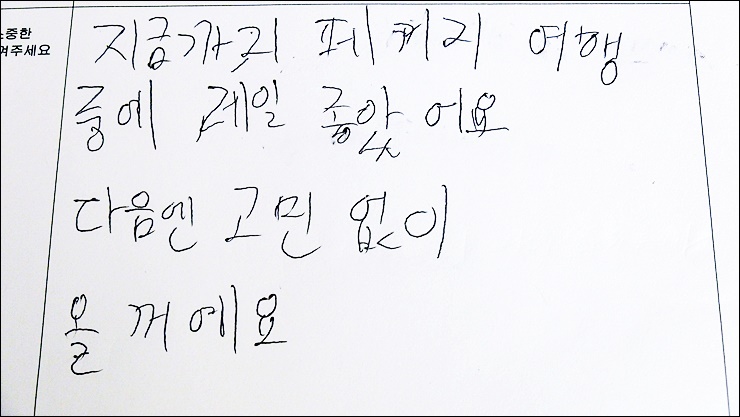 소중한
여주세요
지금까지 페키지 여행
중에 제일 좋았어요
다음엔 고민 없이
올 꺼에요